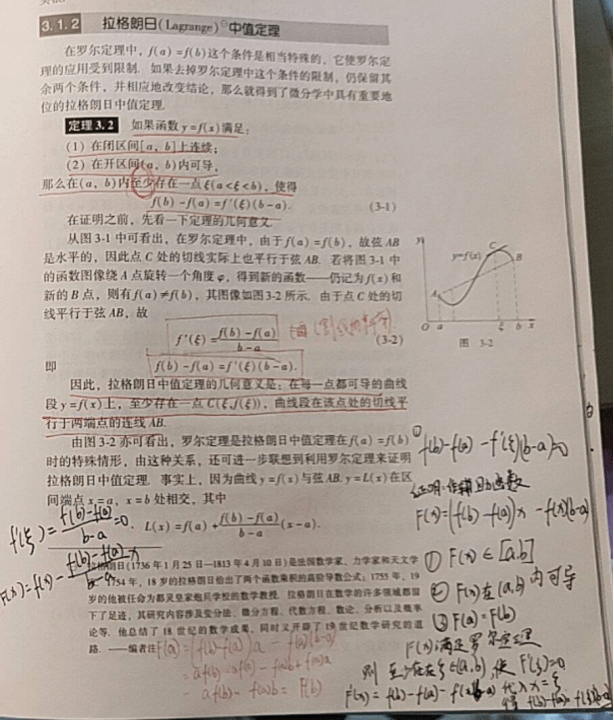 3.1.2 拉格朗日(Lagrange)⊖中值定理
在罗尔定理中，f(a)=f(b)这个条件是相当特殊的，它使罗尔定
理的应用受到限制. 如果去掉罗尔定理中这个条件的限制，仍保留其
余两个条件，并相应地改变结论，那么就得到了微分学中具有重要地
位的拉格朗日中值定理.
定理3.2 如果函数y=f(x)满足：
(1) 在闭区间[a, b]上连续；
(2) 在开区间(a, b)内可导,
那么在(a, b)内至少存在一点ξ(a<ξ<b)，使得
f(b)-f(a)=f'(ξ)(b-a). (3-1)
在证明之前，先看一下定理的几何意义.
从图3-1中可看出，在罗尔定理中，由于f(a)=f(b)，故弦AB
是水平的，因此点C处的切线实际上也平行于弦AB. 若将图3-1中
的函数图像绕A点旋转一个角度φ，得到新的函数——仍记为f(x)和
新的B点，则有f(a)≠f(b)，其图像如图3-2所示. 由于点C处的切
线平行于弦AB，故
y
y=f(x)
C
B
A
O a ξ b x
图 3-2
f'(ξ)=\frac{f(b)-f(a)}{b-a} (3-2)
即 f(b)-f(a)=f'(ξ)(b-a).
因此，拉格朗日中值定理的几何意义是：在每一点都可导的曲线
段y=f(x)上，至少存在一点C(ξ,f(ξ))，曲线段在该点处的切线平
行于两端点的连线AB.
由图3-2亦可看出，罗尔定理是拉格朗日中值定理在f(a)=f(b)
时的特殊情形，由这种关系，还可进一步联想到利用罗尔定理来证明
拉格朗日中值定理. 事实上，因为曲线y=f(x)与弦AB:y=L(x)在区
间端点x=a，x=b处相交，其中
L(x)=f(a)+\frac{f(b)-f(a)}{b-a}(x-a).
f'(ξ)=\frac{f(b)-f(a)}{b-a}=0
F(x)=f(x)-\frac{f(b)-f(a)}{b-a}x
拉格朗日(1736年1月25日—1813年4月10日)是法国数学家、力学家和天文学
1754年，18岁的拉格朗日给出了两个函数乘积的高阶导数公式；1755年，19
岁的他被任命为都灵皇家炮兵学校的数学教授. 拉格朗日在数学的许多领域都留
下了足迹，其研究内容涉及变分法、微分方程、代数方程、数论、分析以及概率
论等. 他总结了18世纪的数学成果，同时又开辟了19世纪数学研究的道
路. ——编者注
F(a)=(f(b)-f(a))a-f(a)(b-a)
=af(b)-af(a)-f(a)b+f(a)a
=af(b)-f(a)b=F(b)
f(b)-f(a)-f'(ξ)(b-a)=0
证明:作辅助函数
F(x)=(f(b)-f(a))x-f(x)(b-a)
① F(x)∈[a,b]
② F(x)在(a,b)内可导
③ F(a)=F(b)
F(x)满足罗尔定理
则 至少存在ξ∈(a,b),使F'(ξ)=0
F'(x)=f(b)-f(a)-f'(x)(b-a) 代入x=ξ
得 f(b)-f(a)=f'(ξ)(b-a)